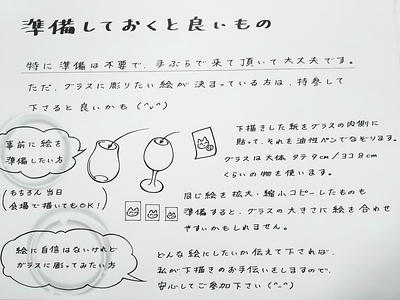 準備しておくと良いもの
特に準備は不要で、手ぶらで来て頂いて大丈夫です。
ただ、グラスに彫りたい絵が決まっている方は、持参して
下さると良いかも(^v^)
事前に絵を
準備したい方
(もちろん当日
会場で描いてもOK!)
下描きした紙をグラスの内側に
貼って、それを油性ペンでなぞります。
グラスは大体 タテ9cm/ヨコ8cm
くらいの物を使います。
同じ絵を拡大・縮小コピーしたものも
準備すると、グラスの大きさに絵を合わせ
やすいかもしれません。
絵に自信はないけれど
ガラスに彫ってみたい方
どんな絵にしたいか伝えて下されば、
私が下描きのお手伝いをしますので、
安心してご参加下さい(^^)